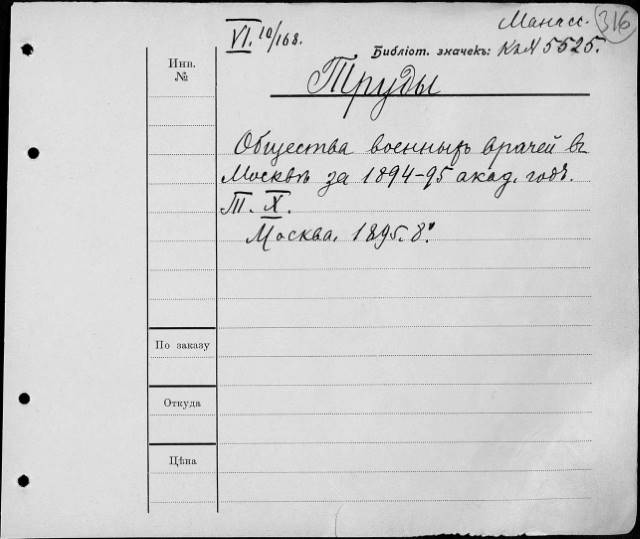 Манасс. 316
VI. 10/168.
Библіот. значекъ: К2№ 5525.
Инв.
№
Труды
Общества военныхъ врачей въ
Москвѣ за 1894-95 акад. годъ.
Т. X.
Москва. 1895. 8°.
По заказу
Откуда
Цѣна